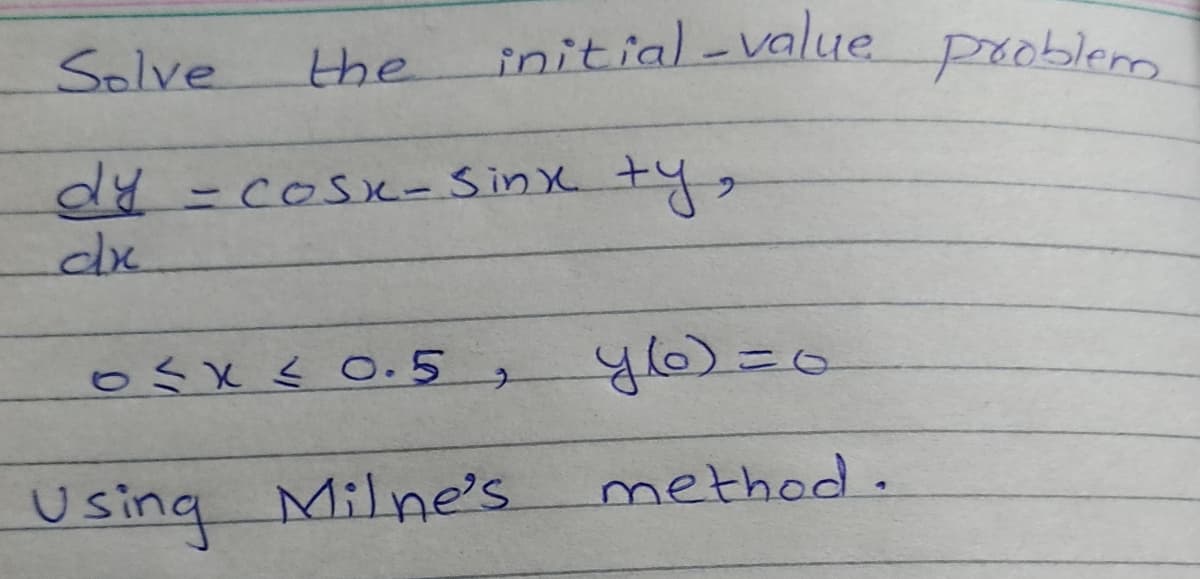 Solve the initial-value problem
dy/dx = cosx - sinx + y,
0 ≤ x ≤ 0.5, y(0) = 0
Using Milne's method.